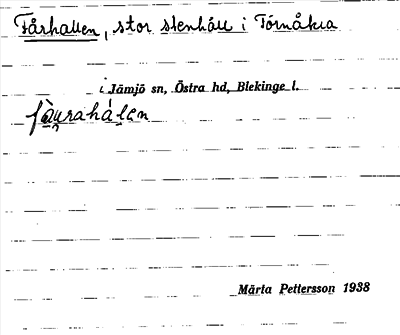 Fårhallen, stor stenhäll i Törnåkra
i Jämjö sn, Östra hd, Blekinge l.
Märta Pettersson 1938